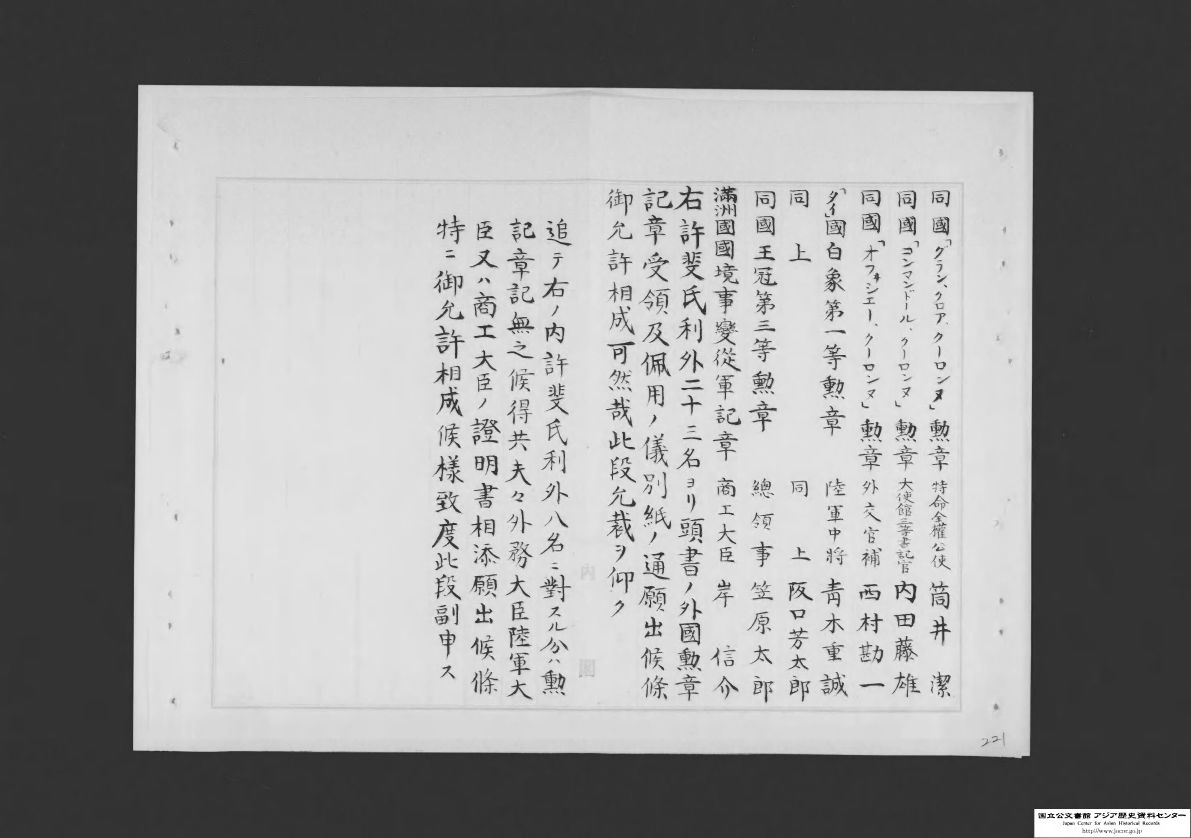 同國「グラン、クロア、クーロンヌ」勲章 特命全權公使 筒井 潔
同國「コンマンドール、クーロンヌ」勲章 大使館三等書記官 内田藤雄
同國「オフィシエー、クーロンヌ」勲章 外交官補 西村勘一
「タイ」國白象第一等勲章 陸軍中將 青木重誠
同 上 同 上 阪口芳太郎
同國王冠第三等勲章 總領事 笠原太郎
滿洲國國境事變從軍記章 商工大臣 岸 信介
右許斐氏利外二十三名ヨリ頭書ノ外國勲章
記章受領及佩用ノ儀別紙ノ通願出候條
御允許相成可然哉此段允裁ヲ仰ク
追テ右ノ内許斐氏利外八名ニ對スル分ハ勲
記章記無之候得共夫々外務大臣陸軍大
臣又ハ商工大臣ノ證明書相添願出候條
特ニ御允許相成候様致度此段副申ス
内
閣
221
国立公文書館 アジア歴史資料センター
Japan Center for Asian Historical Records
http://www.jacar.go.jp